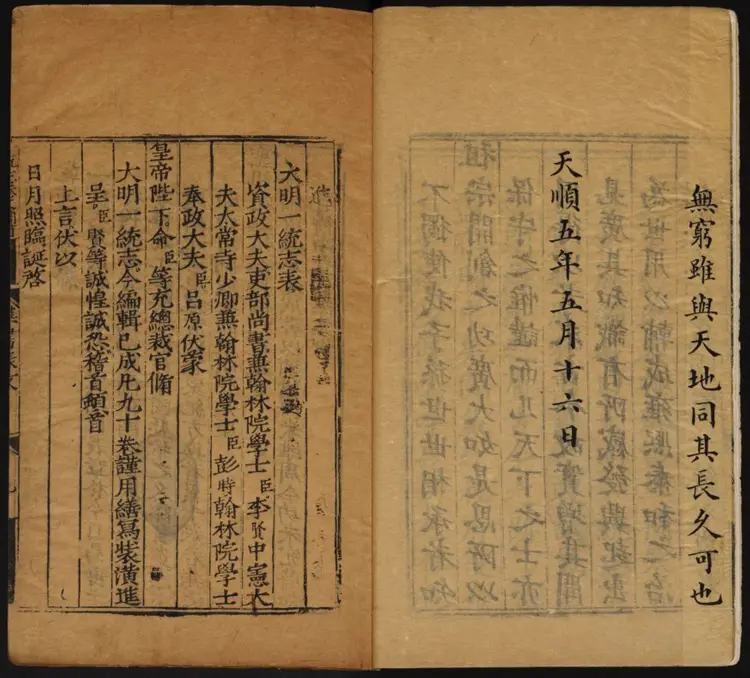 無窮雖與天地同其長久可也
天順五年五月十六日
大明一統志表
資政大夫吏部尚書兼翰林院學士臣李賢中憲大
夫太常寺少卿兼翰林院學士臣彭時翰林院學士
奉政大夫臣呂原伏蒙
皇帝陛下命臣等充總裁官脩
大明一統志今編輯已成凡九十卷謹用繕寫裝潢進
呈臣賢等誠惶誠恐稽首頓首
上言伏以
日月照臨誕啓